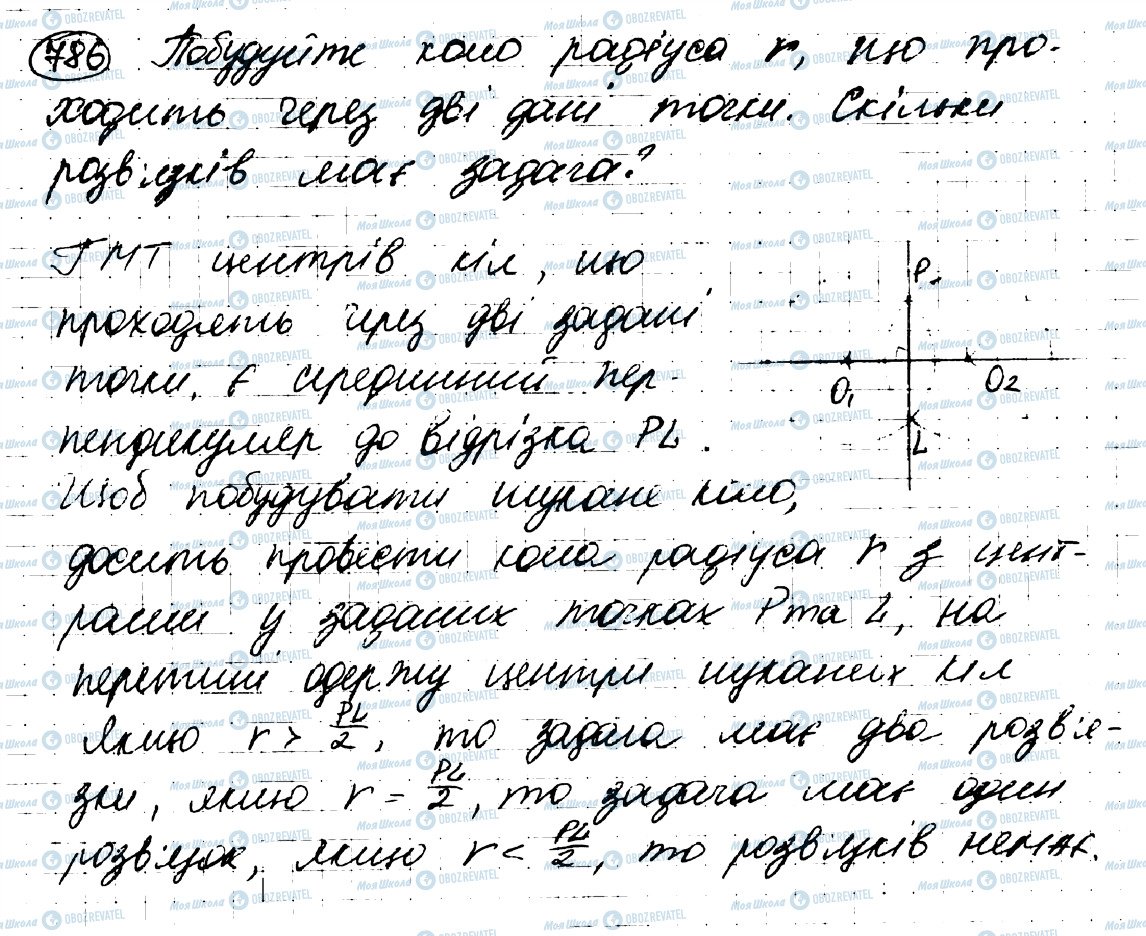 786 Побудуйте коло радіуса r, що про-
ходить через дві дані точки. Скільки
розв'язків має задача?
ГМТ центрів кіл, що
проходять через дві задані
точки, є серединний пер-
пендикуляр до відрізка PL.
Щоб побудувати шукане коло,
досить провести кола радіуса r з цент-
рами у заданих точках P та L, на
перетині одержу центри шуканих кіл
Якщо r > PL/2, то задача має два розв'я-
зки, якщо r = PL/2, то задача має один
розв'язок, якщо r < PL/2, то розв'язків немає.
P
O₁ O₂
L